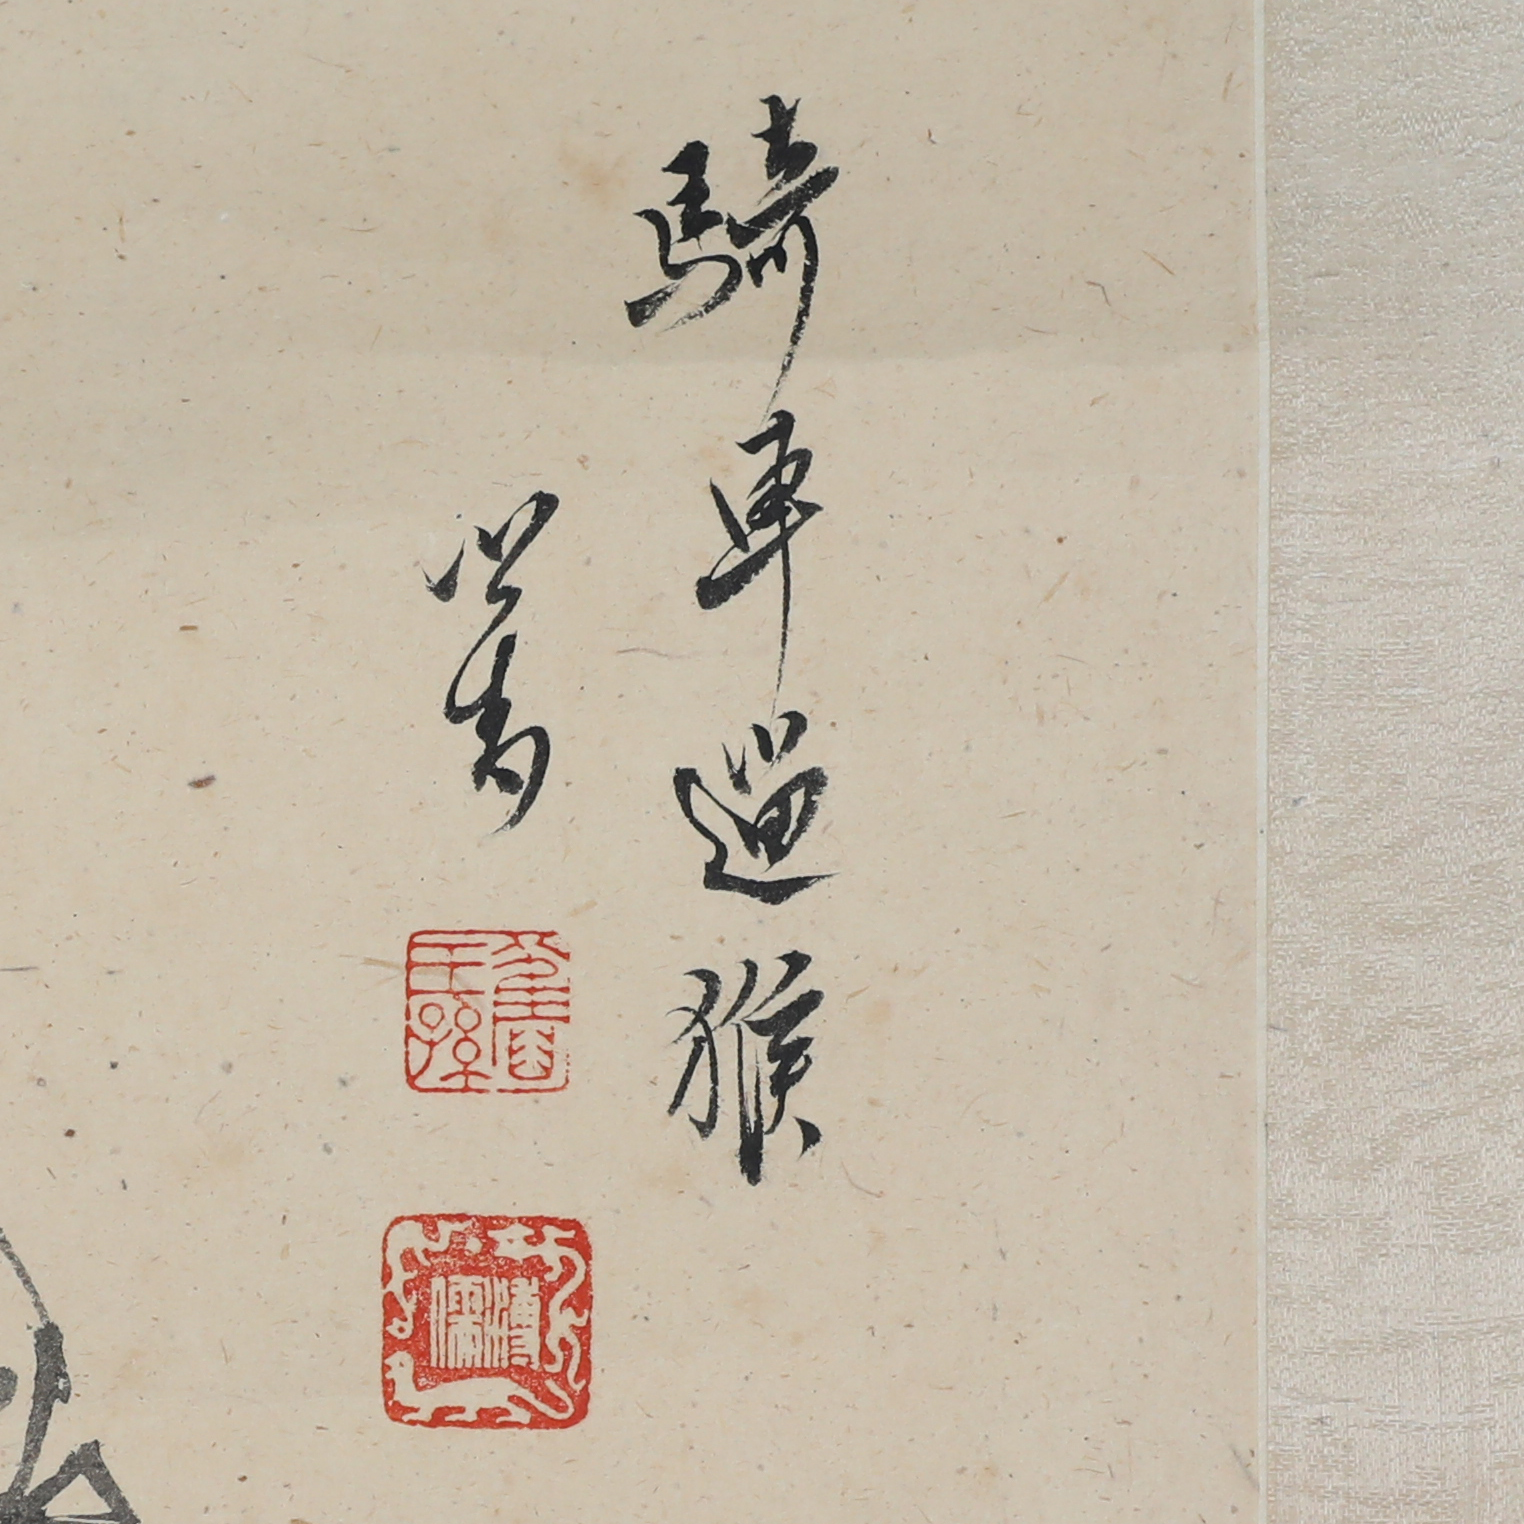 騎車遛猴
心畬
舊王孫
溥儒